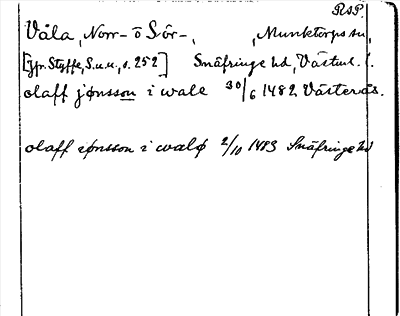 RAP.
Våla, Norr- o Sör-, , Munktorps sn,
[jfr. Styffe, S.u.u., s. 252] Snäfringe hd, Västml. l.
olaff jønsson i wale 30/6 1482 Västerås.
olaff iønsson i walø 2/10 1483 Snäfringe hd